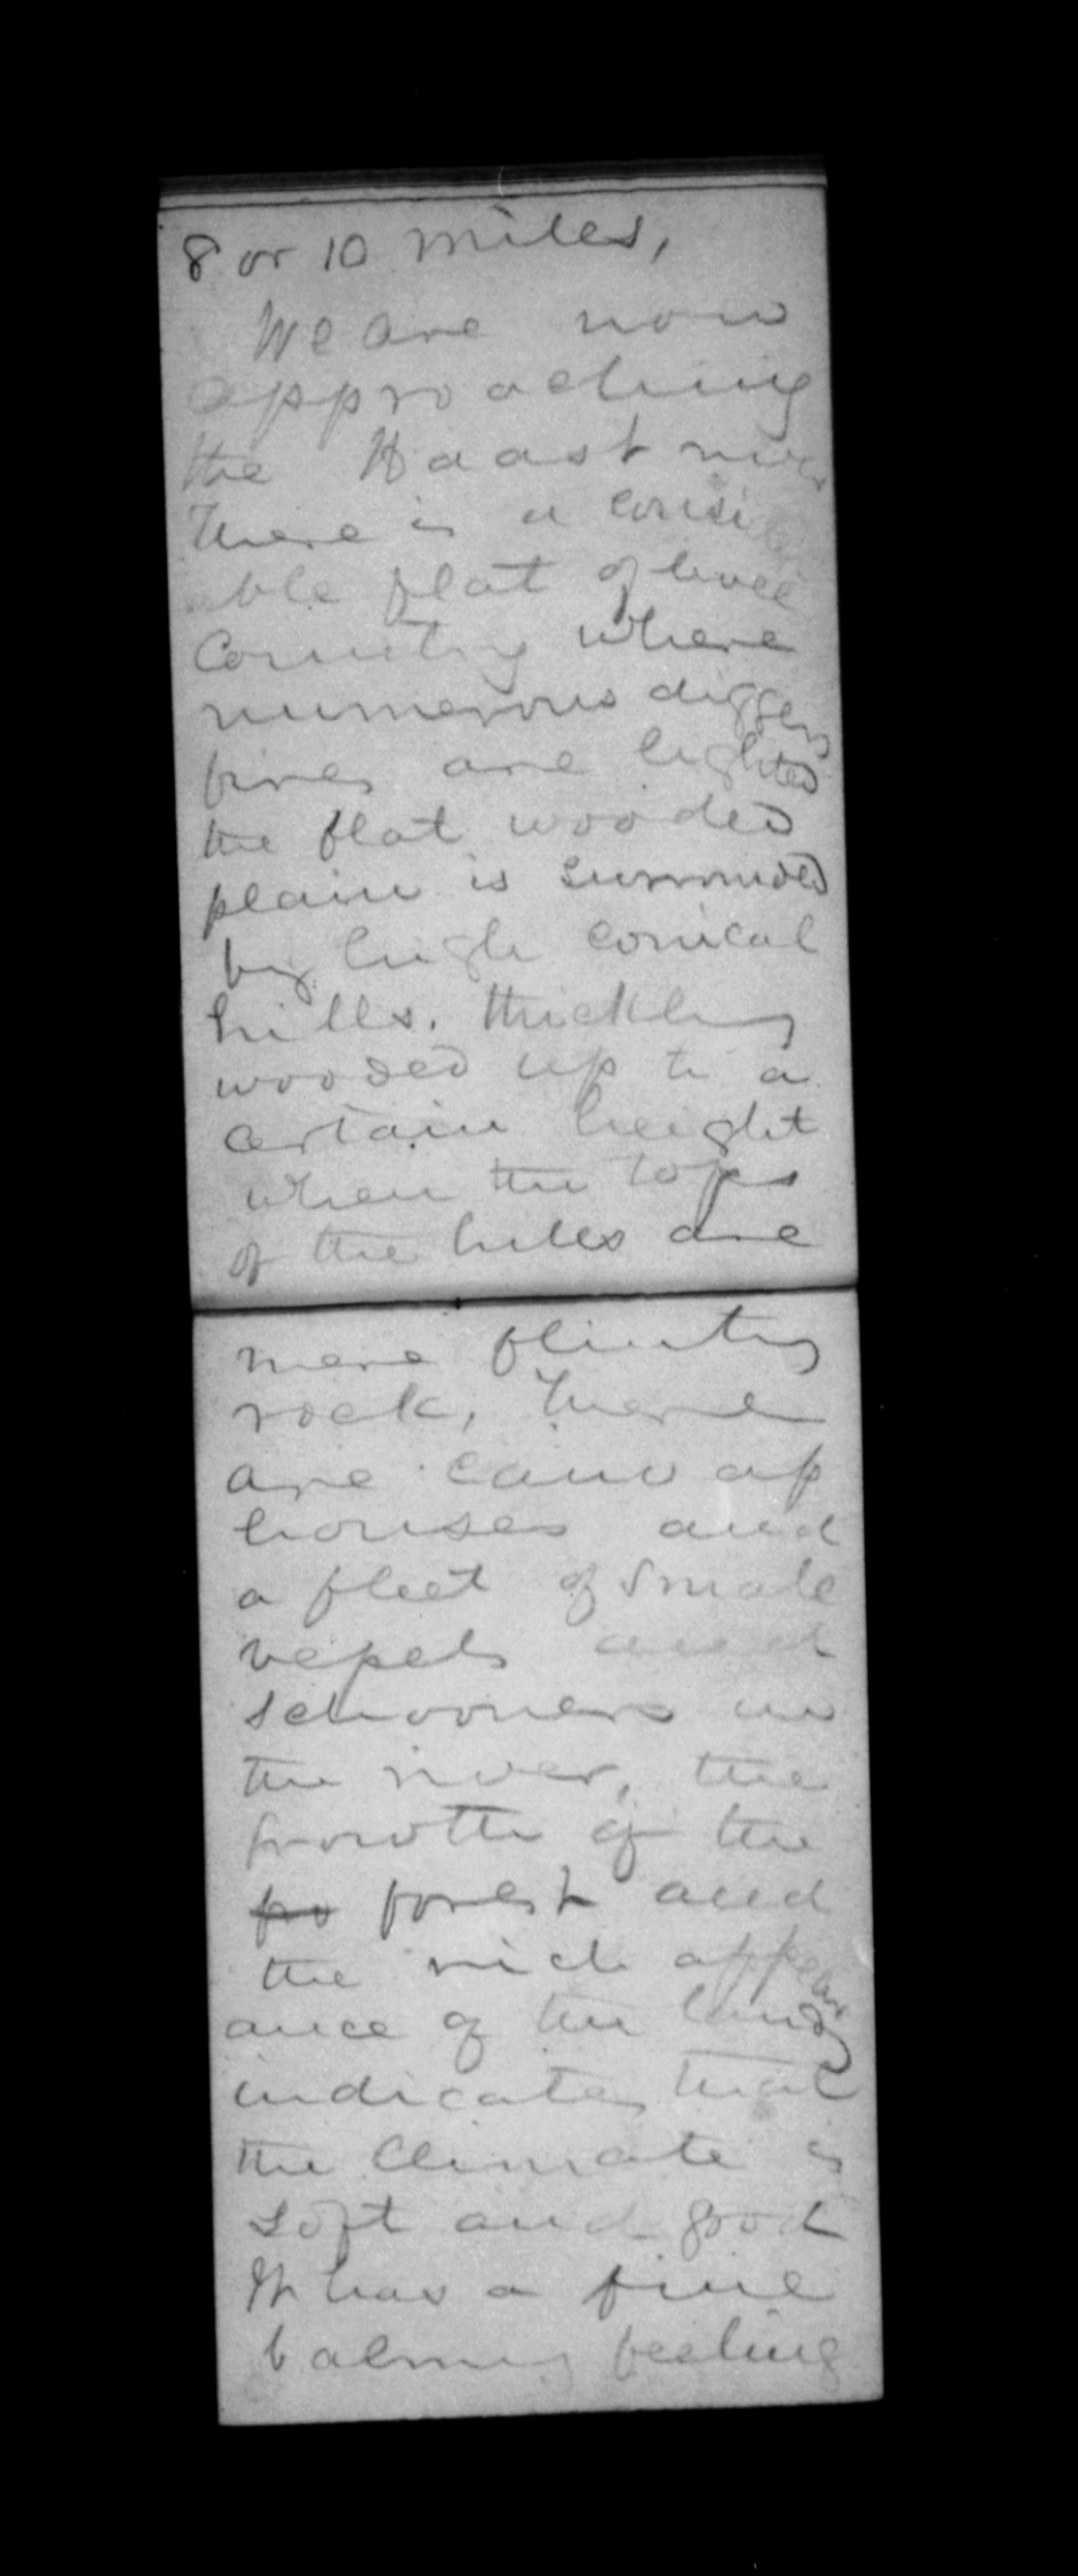 8 or 10 miles,
We are now
approaching
the Haast river
There is a consider
able flat of level
Country where
numerous diggers
fires are lighted
the flat wooded
plain is surrounded
by high conical
hills. thickly
wooded up to a
certain height
when the tops
of the hills are
mere flinty
rock, There
are canvas
houses and
a fleet of small
vessels and
schooners in
the river, the
growth of the
fro forest and
the rich appear
ance of the land
indicates that
the Climate is
soft and good
It has a fine
balmy feeling